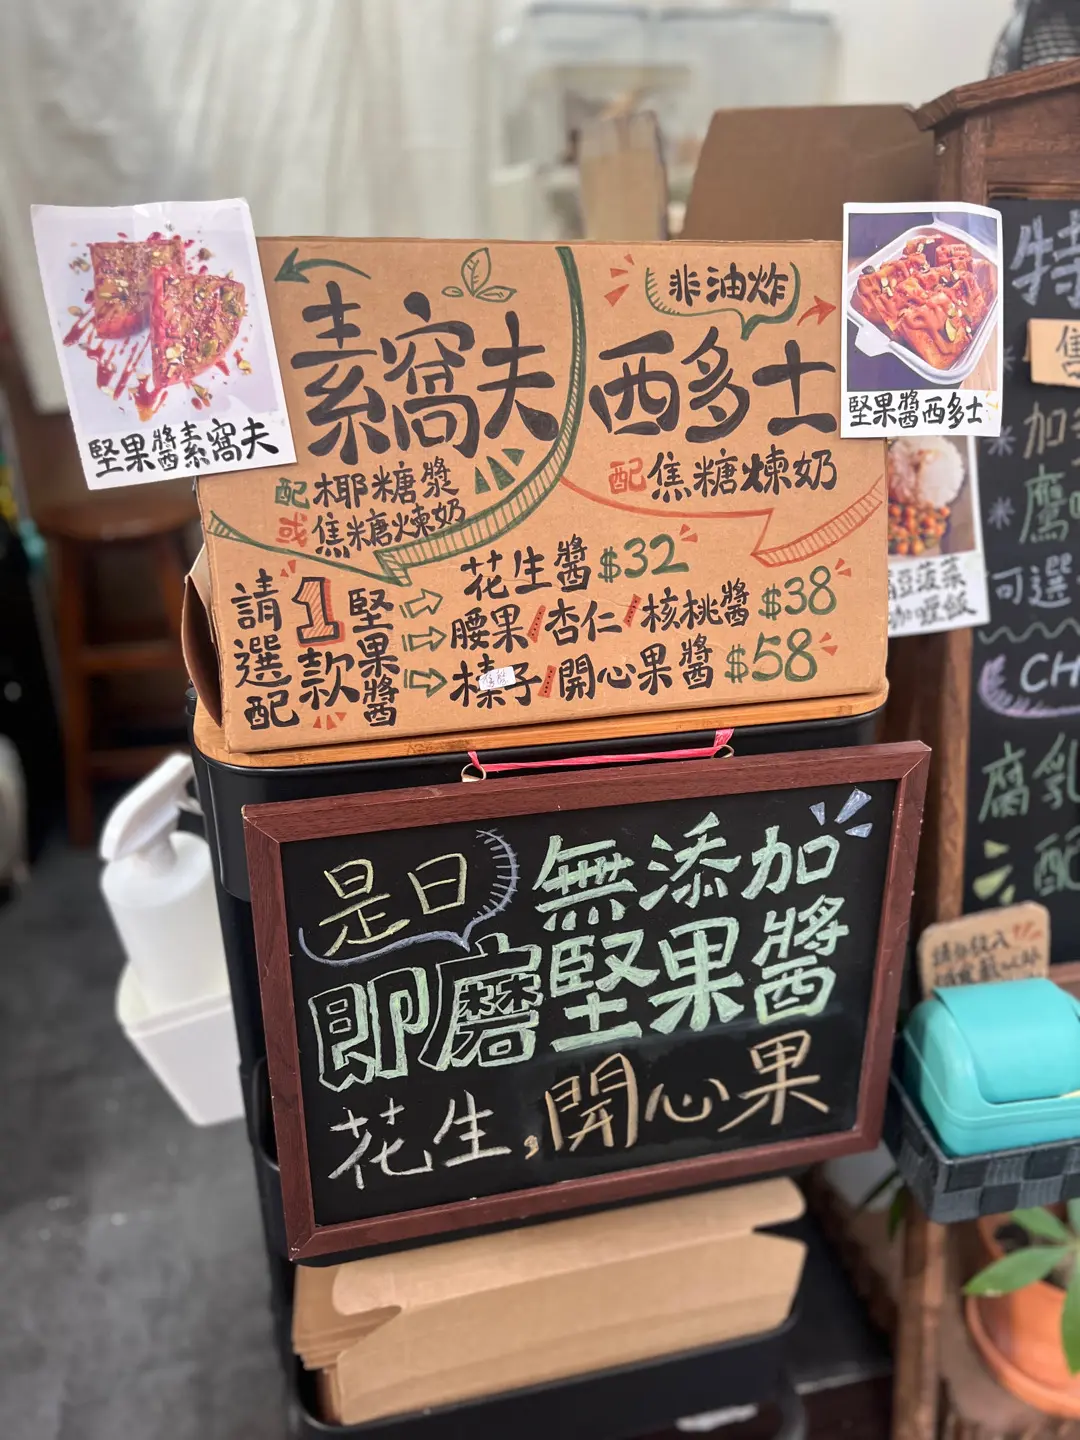 素窩夫
配椰糖漿
或焦糖煉奶
非油炸
西多士
配焦糖煉奶
請選配1款堅果醬
花生醬$32
腰果/杏仁/核桃醬$38
榛子/開心果醬$58
堅果醬素窩夫
堅果醬西多士
是日
即磨
無添加
堅果醬
花生,開心果
豆菠菜
咖喱飯
特
焦
加
鷹
可選
CH
腐乳
配